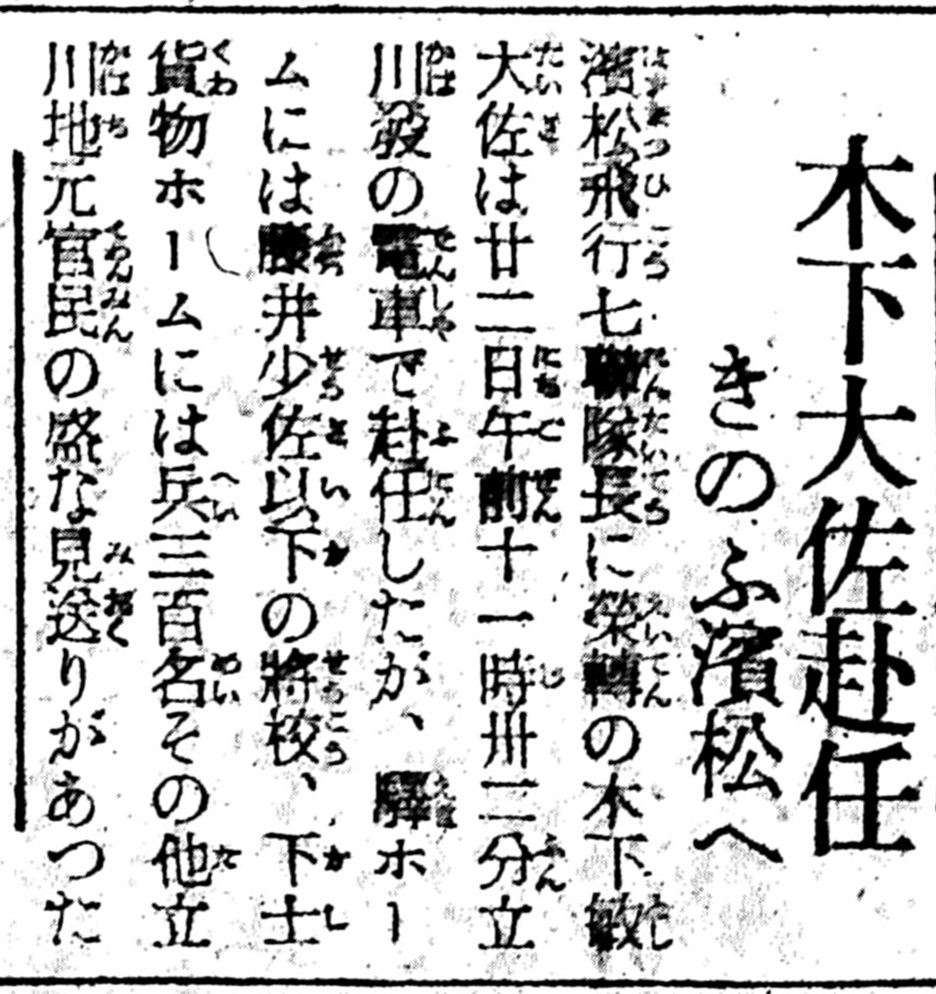 木下大佐赴任
きのふ濱松へ
濱松飛行七聯隊長に榮轉の木下敏
大佐は廿二日午前十一時卅二分立
川發の電車で赴任したが、驛ホー
ムには藤井少佐以下の將校、下士
貨物ホームには兵三百名その他立
川地元官民の盛な見送りがあつた